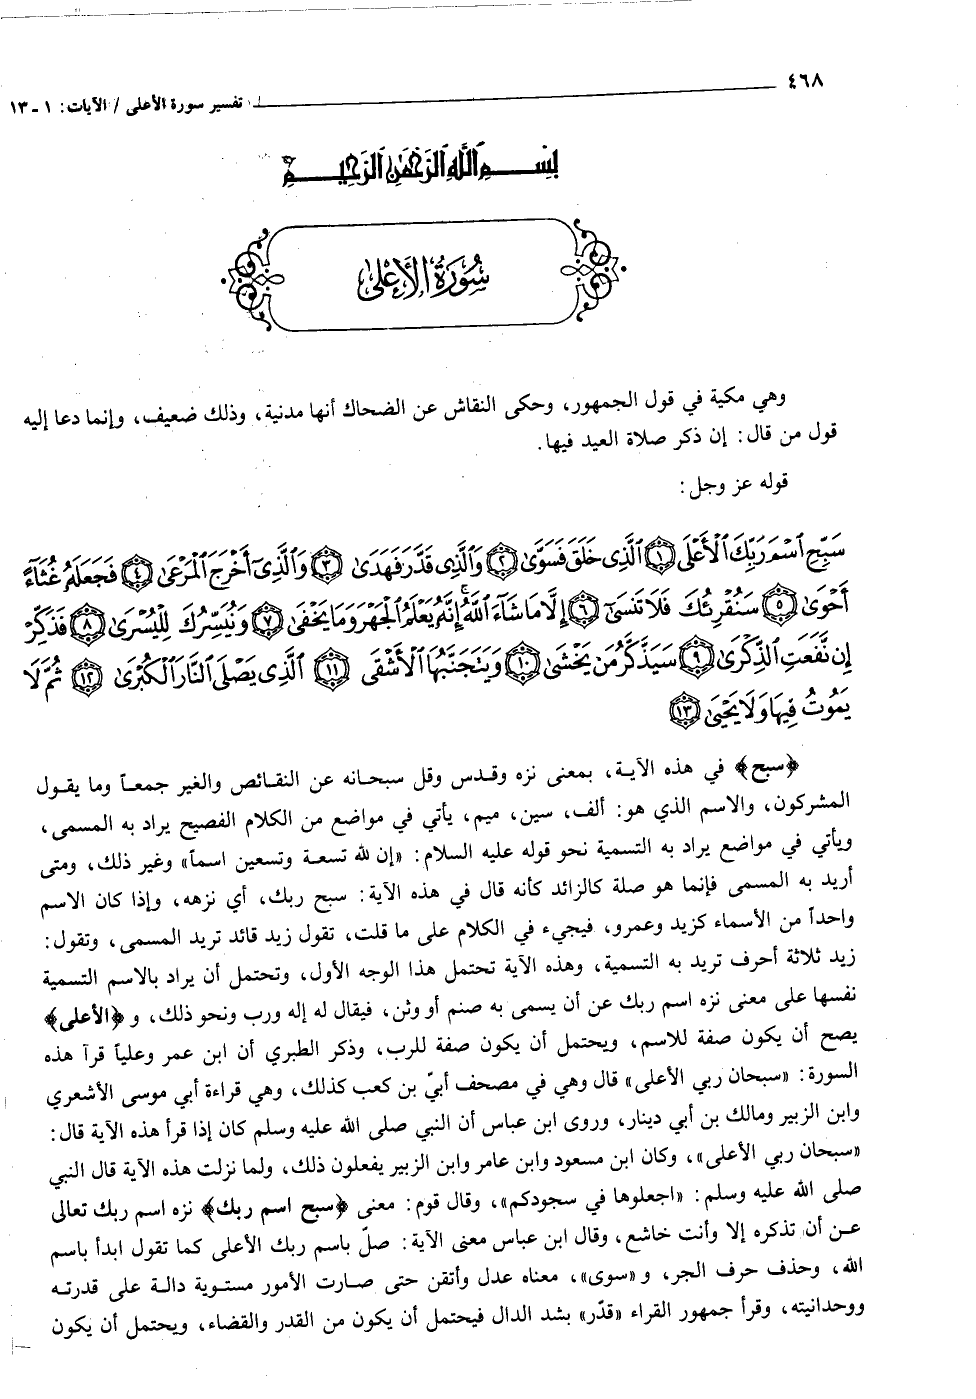 ٤٦٨
تفسير سورة الأعلى / الآيات: ١ - ١٣
بِسْمِ اللَّهِ الرَّحْمَٰنِ الرَّحِيمِ
سُورَةُ الأَعْلَى
وهي مكية في قول الجمهور، وحكى النقاش عن الضحاك أنها مدنية، وذلك ضعيف، وإنما دعا إليه
قول من قال: إن ذكر صلاة العيد فيها.
قوله عز وجل:
سَبِّحِ اسْمَ رَبِّكَ الْأَعْلَى ﴿١﴾ الَّذِي خَلَقَ فَسَوَّىٰ ﴿٢﴾ وَالَّذِي قَدَّرَ فَهَدَىٰ ﴿٣﴾ وَالَّذِي أَخْرَجَ الْمَرْعَىٰ ﴿٤﴾ فَجَعَلَهُ غُثَاءً
أَحْوَىٰ ﴿٥﴾ سَنُقْرِئُكَ فَلَا تَنسَىٰ ﴿٦﴾ إِلَّا مَا شَاءَ اللَّهُ إِنَّهُ يَعْلَمُ الْجَهْرَ وَمَا يَخْفَىٰ ﴿٧﴾ وَنُيَسِّرُكَ لِلْيُسْرَىٰ ﴿٨﴾ فَذَكِّرْ
إِن نَّفَعَتِ الذِّكْرَىٰ ﴿٩﴾ سَيَذَّكَّرُ مَن يَخْشَىٰ ﴿١٠﴾ وَيَتَجَنَّبُهَا الْأَشْقَى ﴿١١﴾ الَّذِي يَصْلَى النَّارَ الْكُبْرَىٰ ﴿١٢﴾ ثُمَّ لَا
يَمُوتُ فِيهَا وَلَا يَحْيَىٰ ﴿١٣﴾
﴿سبح﴾ في هذه الآية، بمعنى نزه وقدس وقل سبحانه عن النقائص والغير جمعاً وما يقول
المشركون، والاسم الذي هو: ألف، سين، ميم، يأتي في مواضع من الكلام الفصيح يراد به المسمى،
ويأتي في مواضع يراد به التسمية نحو قوله عليه السلام: «إن لله تسعة وتسعين اسماً» وغير ذلك، ومتى
أريد به المسمى فإنما هو صلة كالزائد كأنه قال في هذه الآية: سبح ربك، أي نزهه، وإذا كان الاسم
واحداً من الأسماء كزيد وعمرو، فيجيء في الكلام على ما قلت، تقول زيد قائد تريد المسمى، وتقول:
زيد ثلاثة أحرف تريد به التسمية، وهذه الآية تحتمل هذا الوجه الأول، وتحتمل أن يراد بالاسم التسمية
نفسها على معنى نزه اسم ربك عن أن يسمى به صنم أو وثن، فيقال له إله ورب ونحو ذلك، و ﴿الأعلى﴾
يصح أن يكون صفة للاسم، ويحتمل أن يكون صفة للرب، وذكر الطبري أن ابن عمر وعلياً قرآ هذه
السورة: «سبحان ربي الأعلى» قال وهي في مصحف أبيّ بن كعب كذلك، وهي قراءة أبي موسى الأشعري
وابن الزبير ومالك بن أبي دينار، وروى ابن عباس أن النبي صلى الله عليه وسلم كان إذا قرأ هذه الآية قال:
«سبحان ربي الأعلى»، وكان ابن مسعود وابن عامر وابن الزبير يفعلون ذلك، ولما نزلت هذه الآية قال النبي
صلى الله عليه وسلم: «اجعلوها في سجودكم»، وقال قوم: معنى ﴿سبح اسم ربك﴾ نزه اسم ربك تعالى
عن أن تذكره إلا وأنت خاشع، وقال ابن عباس معنى الآية: صلّ باسم ربك الأعلى كما تقول ابدأ باسم
الله، وحذف حرف الجر، و «سوى»، معناه عدل وأتقن حتى صارت الأمور مستوية دالة على قدرته
ووحدانيته، وقرأ جمهور القراء «قدّر» بشد الدال فيحتمل أن يكون من القدر والقضاء، ويحتمل أن يكون